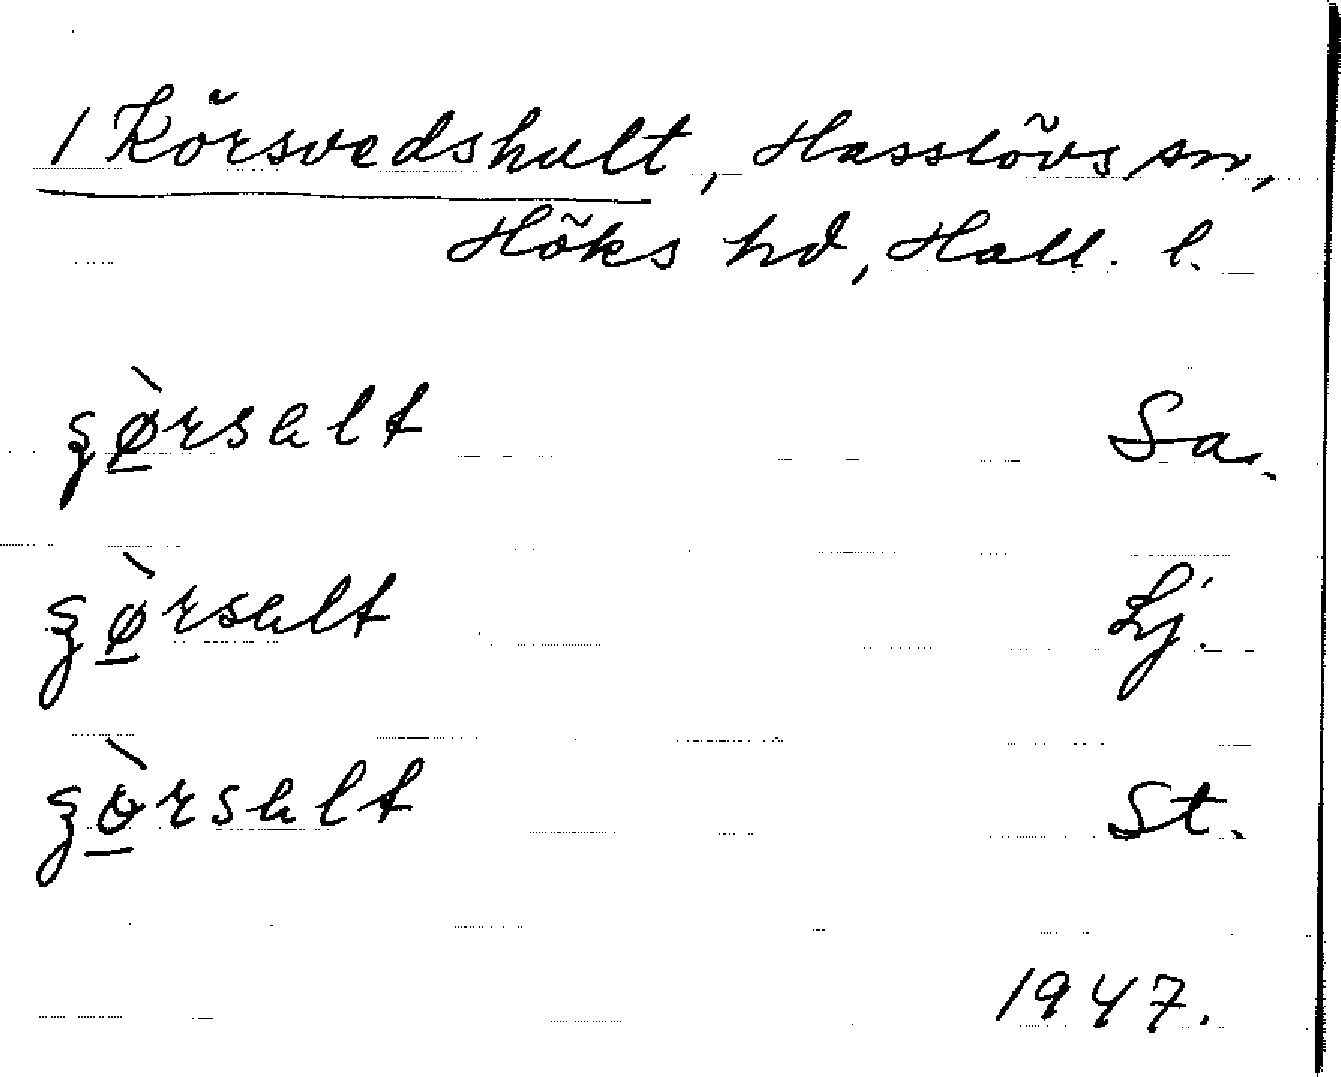 1 Körsvedshult, Hasslövs sn,
Höks hd, Hall. l.
ʒø̠̀rsalt Sa.
ʒø̠̀rsalt Lj.
ʒò̠rsalt St.
1947.